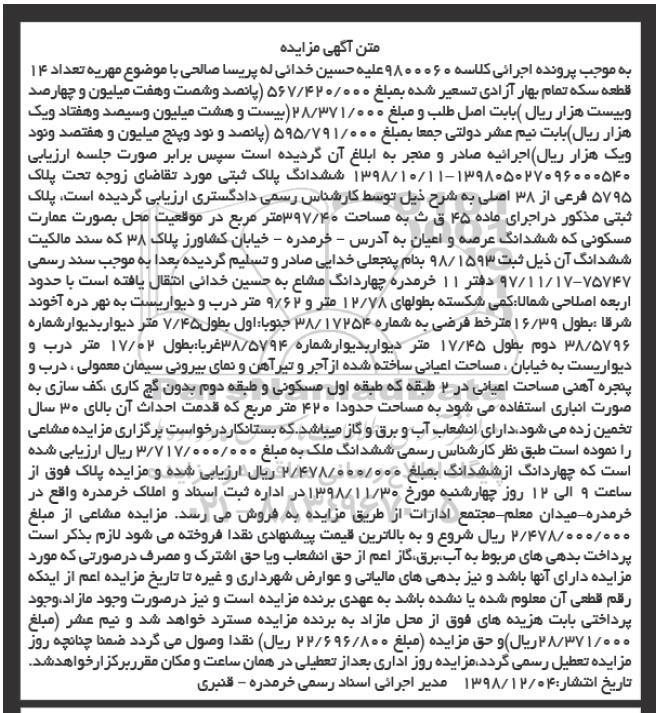 متن آگهی مزایده
به موجب پرونده اجرائی کلاسه ۹۸۰۰۰۶۰علیه حسین خدائی له پریسا صالحی با موضوع مهریه تعداد ۱۴
قطعه سکه تمام بهار آزادی تسعیر شده بمبلغ ۵۶۷/۴۲۰/۰۰۰ (پانصد وشصت وهفت میلیون و چهارصد
وبیست هزار ریال )بابت اصل طلب و مبلغ ۲۸/۳۷۱/۰۰۰(بیست و هشت میلیون وسیصد وهفتاد ویک
هزار ریال)بابت نیم عشر دولتی جمعا بمبلغ ۵۹۵/۷۹۱/۰۰۰ (پانصد و نود وپنج میلیون و هفتصد ونود
ویک هزار ریال)اجرائیه صادر و منجر به ابلاغ آن گردیده است سپس برابر صورت جلسه ارزیابی
۱۳۹۸۰۵۰۲۷۰۹۶۰۰۰۵۴۰-۱۳۹۸/۱۰/۱۱ ششدانگ پلاک ثبتی مورد تقاضای زوجه تحت پلاک
۵۷۹۵ فرعی از ۳۸ اصلی به شرح ذیل توسط کارشناس رسمی دادگستری ارزیابی گردیده است، پلاک
ثبتی مذکور دراجرای ماده ۴۵ ق ث به مساحت ۳۹۷/۴۰متر مربع در موقعیت محل بصورت عمارت
مسکونی که ششدانگ عرصه و اعیان به آدرس - خرمدره - خیابان کشاورز پلاک ۳۸ که سند مالکیت
ششدانگ آن ذیل ثبت ۹۸/۱۵۹۳ بنام پنجعلی خدایی صادر و تسلیم گردیده بعدا به موجب سند رسمی
۷۵۷۴۷-۹۷/۱۱/۱۷ دفتر ۱۱ خرمدره چهاردانگ مشاع به حسین خدائی انتقال یافته است با حدود
اربعه اصلاحی شمالا:کمی شکسته بطولهای ۱۲/۷۸ متر و ۹/۶۲ متر درب و دیواریست به نهر دره آخوند
شرقا :بطول ۱۶/۳۹مترخط فرضی به شماره ۳۸/۱۷۲۵۴ جنوبا:اول بطول۷/۴۵ متر دیواربدیوارشماره
۳۸/۵۷۹۶ دوم بطول ۱۷/۴۵ متر دیواربدیوارشماره ۳۸/۵۷۹۴غربا:بطول ۱۷/۰۲ متر درب و
دیواریست به خیابان ، مساحت اعیانی ساخته شده ازآجر و تیرآهن و نمای بیرونی سیمان معمولی ، درب و
پنجره آهنی مساحت اعیانی در ۲ طبقه که طبقه اول مسکونی و طبقه دوم بدون گچ کاری ،کف سازی به
صورت انباری استفاده می شود به مساحت حدودا ۴۲۰ متر مربع که قدمت احداث آن بالای ۳۰ سال
تخمین زده می شود،دارای انشعاب آب و برق و گاز میباشد.که بستانکاردرخواست برگزاری مزایده مشاعی
را نموده است طبق نظر کارشناس رسمی ششدانگ ملک به مبلغ ۳/۷۱۷/۰۰۰/۰۰۰ ریال ارزیابی شده
است که چهاردانگ ازششدانگ بمبلغ ۲/۴۷۸/۰۰۰/۰۰۰ ریال ارزیابی شده و مزایده پلاک فوق از
ساعت ۹ الی ۱۲ روز چهارشنبه مورخ ۱۳۹۸/۱۱/۳۰در اداره ثبت اسناد و املاک خرمدره واقع در
خرمدره-میدان معلم-مجتمع ادارات از طریق مزایده به فروش می رسد. مزایده مشاعی از مبلغ
۲/۴۷۸/۰۰۰/۰۰۰ ریال شروع و به بالاترین قیمت پیشنهادی نقدا فروخته می شود لازم بذکر است
پرداخت بدهی های مربوط به آب،برق،گاز اعم از حق انشعاب ویا حق اشترک و مصرف درصورتی که مورد
مزایده دارای آنها باشد و نیز بدهی های مالیاتی و عوارض شهرداری و غیره تا تاریخ مزایده اعم از اینکه
رقم قطعی آن معلوم شده یا نشده باشد به عهدی برنده مزایده است و نیز درصورت وجود مازاد،وجود
پرداختی بابت هزینه های فوق از محل مازاد به برنده مزایده مسترد خواهد شد و نیم عشر (مبلغ
۲۸/۳۷۱/۰۰۰ریال)و حق مزایده (مبلغ ۲۲/۶۹۶/۸۰۰ ریال) نقدا وصول می گردد ضمنا چنانچه روز
مزایده تعطیل رسمی گردد،مزایده روز اداری بعداز تعطیلی در همان ساعت و مکان مقرربرگزارخواهدشد.
تاریخ انتشار:۱۳۹۸/۱۲/۰۴ مدیر اجرائی اسناد رسمی خرمدره - قنبری